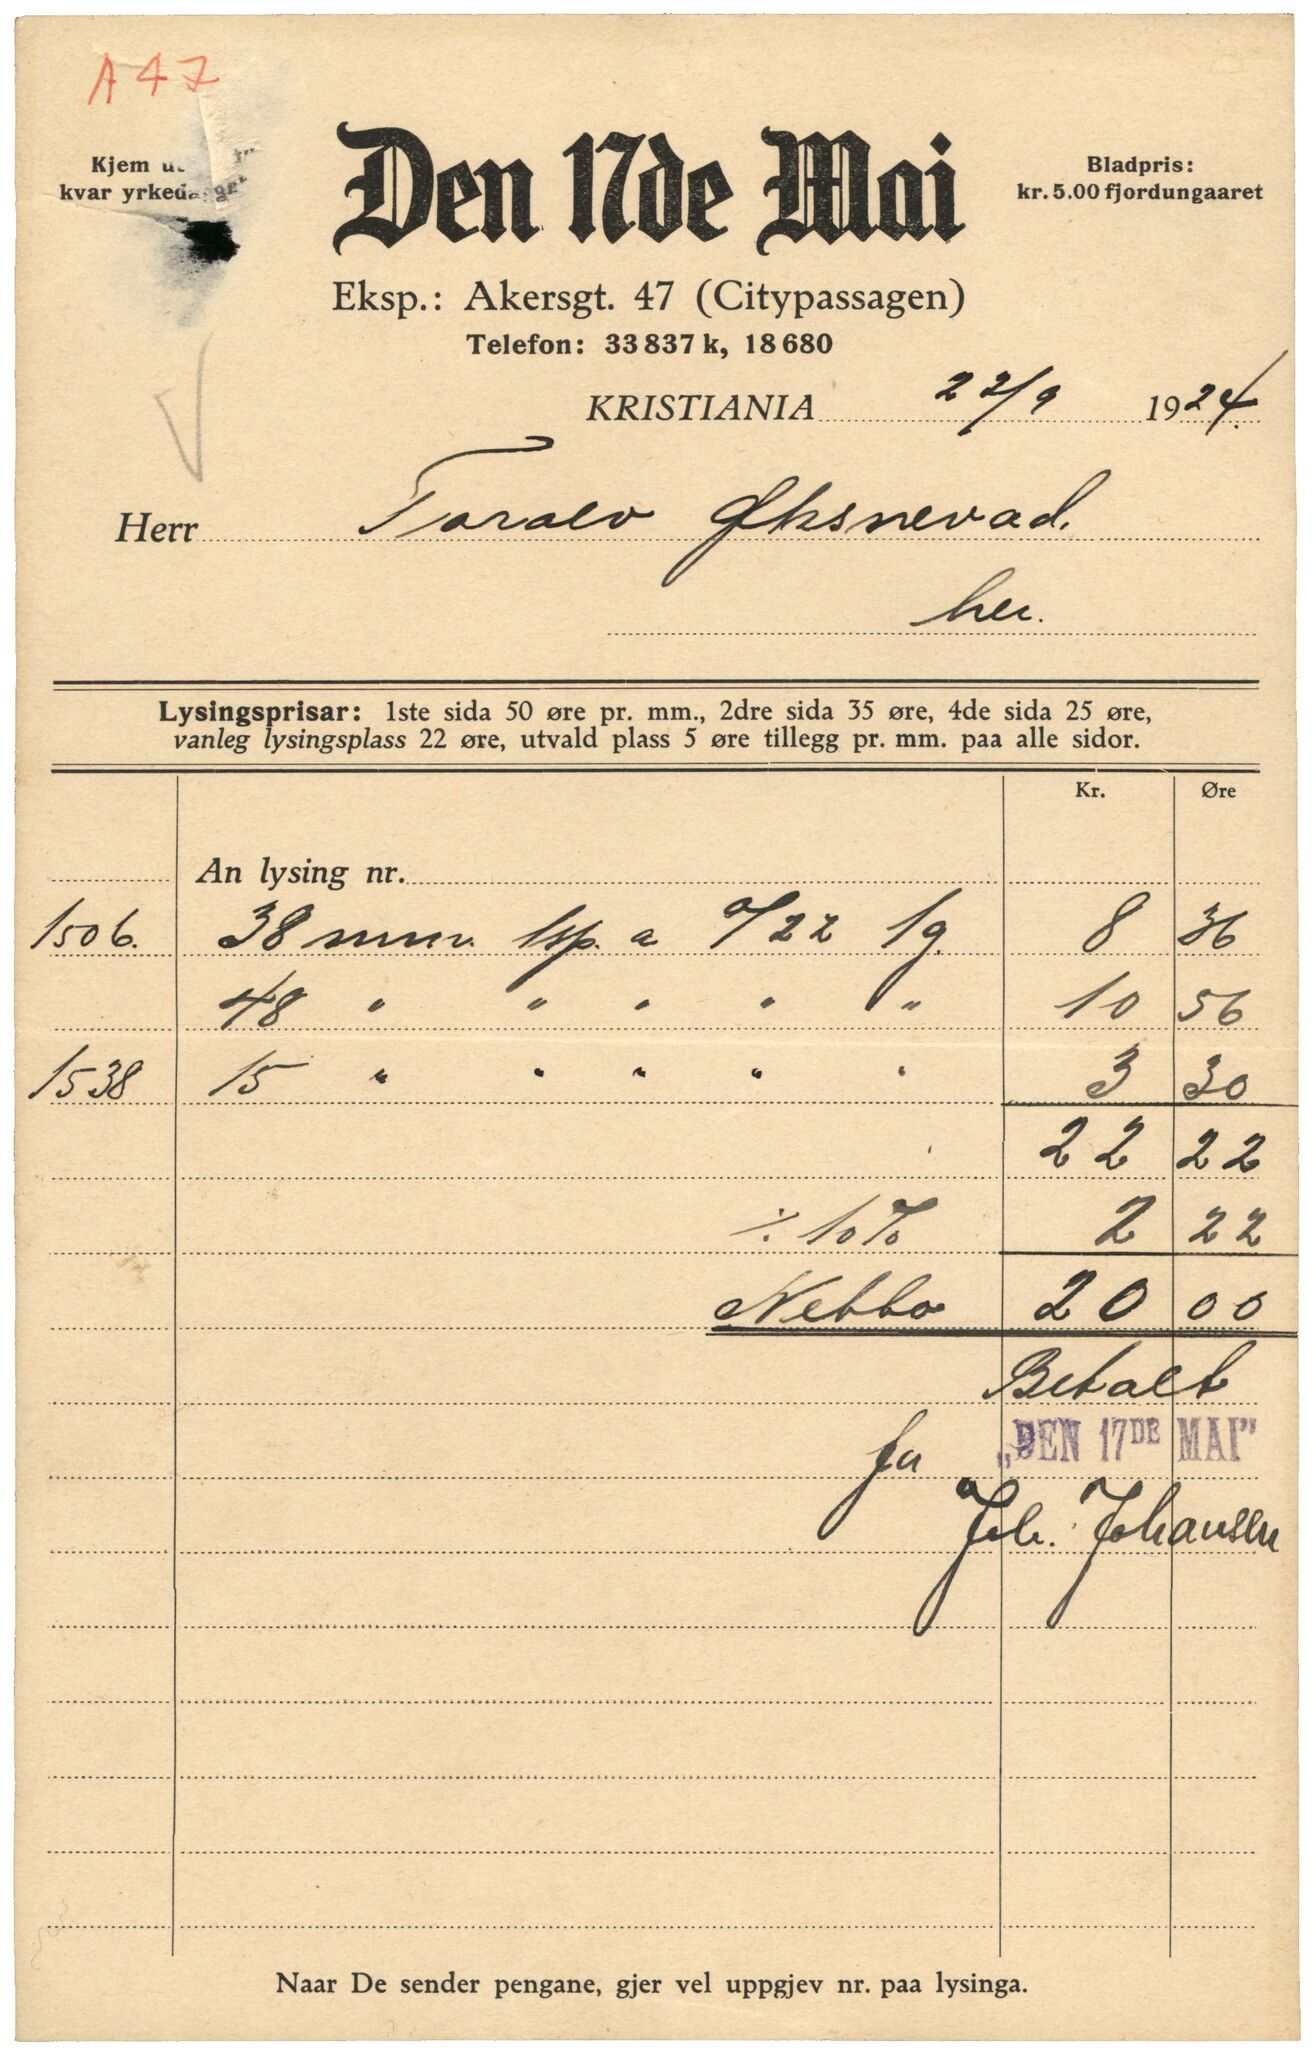 A 47
Kjem
kvar
Den 17de Mai
Bladpris:
kr. 5.00 fjordungaaret
Eksp.: Akersgt. 47 (Citypassagen)
Telefon: 33 837 k, 18 680
KRISTIANIA 22/9 1924.
Herr Toralv Øksnevad.
her.
Lysingsprisar: 1ste sida 50 øre pr. mm., 2dre sida 35 øre, 4de sida 25 øre,
vanleg lysingsplass 22 øre, utvald plass 5 øre tillegg pr. mm. paa alle sidor.
Kr. Øre
An lysing nr.
1506. 38 mm. 1sp. a 0/22 1g. 8 36
48 " " " " " 10 56
1538 15 " " " " " 3 30
22 22
÷ 10% 2 22
Netto 20 00
Betalt
for „DEN 17DE MAI"
Joh. Johansen
Naar De sender pengane, gjer vel uppgjev nr. paa lysinga.